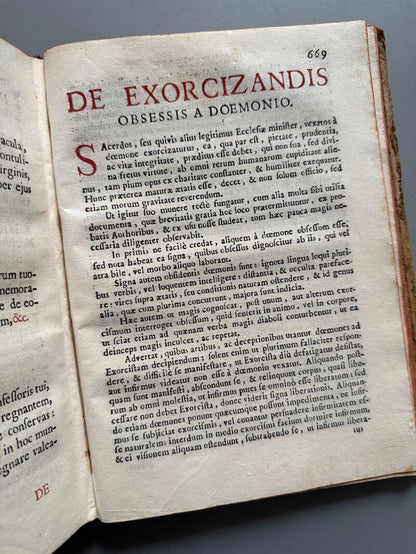 acula,
ontuli-
irginis,
per ejus
rum tuo-
nemora-
de co-
m,&c.
fessoris tui,
regnantem,
conservas:
in hoc mun-
gnare valea-
DE
669
DE EXORCIZANDIS
OBSESSIS A DŒMONIO.
SAcerdos, seu quivis alius legitimus Ecclesiæ minister, vexatos à
dœmone exorcizaturus, ea, qua par est, pietate, prudentia,
ac vitæ integritate, præditus esse debet, qui non sua, sed divi-
na fretus virtute, ab omni rerum humanarum cupiditate alie-
nus, tam pium opus ex charitate constanter, & humiliter exequatur.
Hunc præterea maturæ ætatis esse, decet, & non solum officio, sed
etiam morum gravitate reverendum.
Ut igitur suo munere rectè fungatur, cum alia multa sibi utilia
documenta, quæ brevitatis gratia hoc loco prætermittuntur, ex pro-
batis Authoribus, & ex usu nosse studeat, tum hæc pauca magis ne-
cessaria diligenter observabit.
In primis ne facilè credat, aliquem à dœmone obsessum esse,
sed nota habeat ea signa, quibus obsessus dignoscitur ab iis, qui vel
atra bile, vel morbo aliquo laborant.
Signa autem obsidentis dœmonis sunt: ignota lingua loqui pluri-
bus verbis, vel loquentem intelligere; distantia, & occulta patefa-
ce-
re: vires supra ætatis, seu conditionis naturam ostendere, & id genus
alia, quæ cum plurima concurrunt, majora sunt indicia.
Hæc autem ut magis cognoscat, post unum, aut alterum exor-
cismum interroget obsessum, quid senserit in animo, vel in corpore,
ut sciat etiam ad quænam verba magis diaboli conturbentur, ut ea
deinceps magis inculcet, ac repetat.
Advertat, quibus artibus, ac deceptionibus utantur dœmones ad
Exorcistam decipiendum: solent enim ut plurimum fallaciter respon-
dere, & difficile se manifestare, ut Exorcista diù defatigatus desistat,
aut infirmus videatur non esse à dœmonio vexatus. Aliquando post-
quam sunt manifesti, abscondunt se, & relinquunt corpus, quasi libe-
rum ab omni molestia, ut infirmus putet se omnino esse liberatum; sed
cessare non debet Exorcista, donec viderit signa liberationis. Aliquan-
do etiam dœmones ponunt quæcumque possunt impedimenta, ne infir-
mus se subjiciat exorcismis, vel conantur persuadere infirmitatem esse
naturalem: interdum in medio exorcismi faciunt dormire infirmum,
& ei visionem aliquam ostendunt, subtrahendo se, ut infirmus libera-
tus